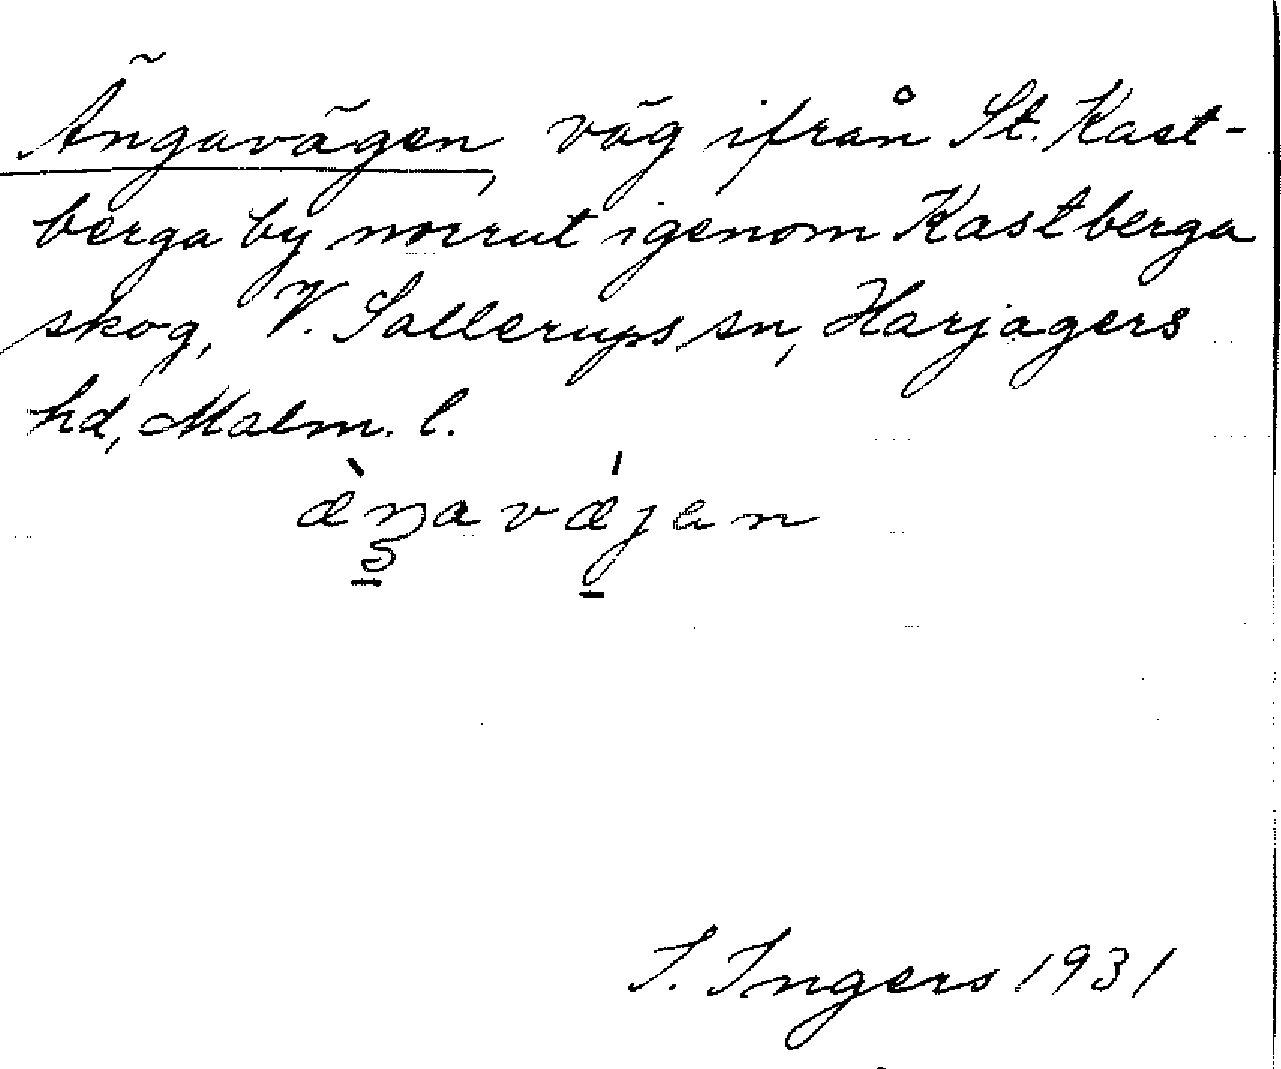 Ängavägen, väg ifrån St. Kast-
berga by norrut igenom Kastberga
skog, V. Sallerups sn, Harjagers
hd, Malm. l.
æ̀ŋavǽjen
I. Ingers 1931